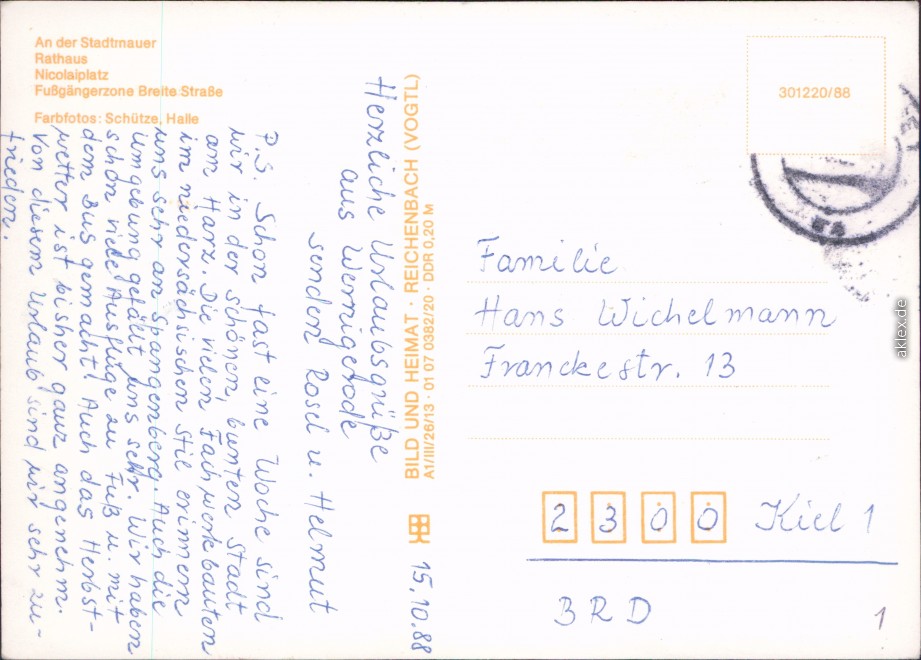 An der Stadtmauer
Rathaus
Nicolaiplatz
Fußgängerzone Breite Straße
Farbfotos: Schütze, Halle
Herzliche Urlaubsgrüße
aus Wernigerode
senden Rosel u. Helmut
P.S. Schon fast eine Woche sind
wir in der schönen, bunten Stadt
am Harz. Die vielen Fachwerkbauten
im niedersächsischen Stil erinnern
uns sehr an Spangenberg. Auch die
Umgebung gefällt uns sehr. Wir haben
schon viele Ausflüge zu Fuß u. mit
dem Bus gemacht! Auch das Herbst-
wetter ist bisher ganz angenehm.
Von diesem Urlaub sind wir sehr zu-
frieden.
BILD UND HEIMAT · REICHENBACH (VOGTL)
A1/III/26/13 · 01 07 0382/20 · DDR 0,20 M
15.10.88
301220/88
Familie
Hans Wichelmann
Franckestr. 13
2300 Kiel 1
BRD
1
aklex.de